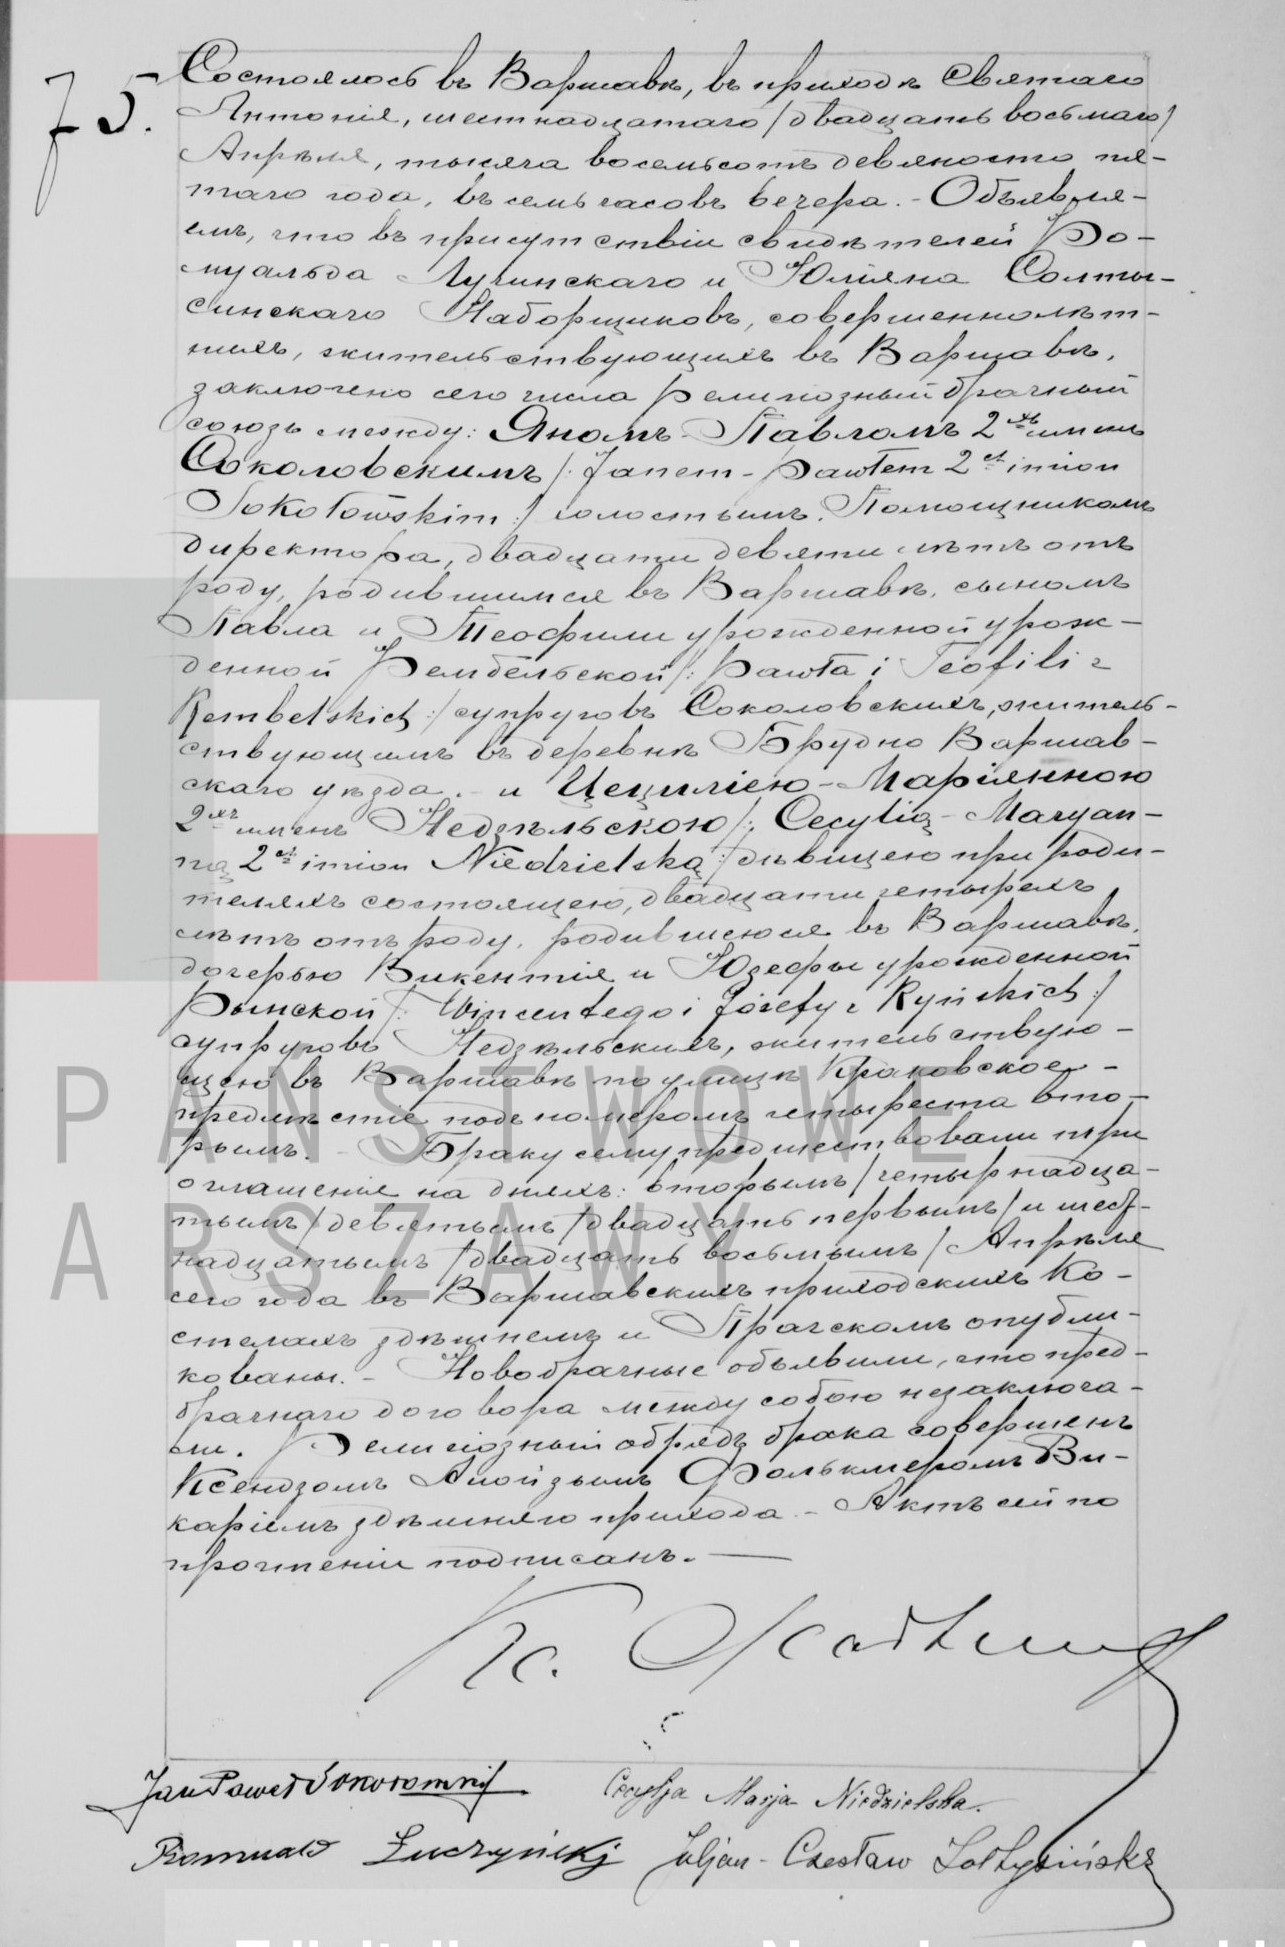 75.
Состоялось въ Варшавѣ, въ приходѣ Святаго
Антонія, шестнадцатаго /двадцать восьмаго/
Апрѣля, тысяча восемьсотъ девяносто пя-
таго года, въ семь часовъ вечера. - Объявля-
емъ, что въ присутствіи свидѣтелей Ро-
муальда Лучинскаго и Юліяна Солты-
синскаго Наборщиковъ, совершеннолѣт-
нихъ, жительствующихъ въ Варшавѣ,
заключенъ сего числа религіозный брачный
союзъ между: Яномъ-Павломъ 2хъ именъ
Соколовскимъ /: Janem-Pawłem 2ch imion
Sokołowskim :/ холостымъ, Помощникомъ
директора, двадцати девяти лѣтъ отъ
роду, родившимся въ Варшавѣ, сыномъ
Павла и Теофили урожденной урож-
денной Рембельской /: Pawła i Teofili z
Rembelskich :/ супруговъ Соколовскихъ, житель-
ствующимъ въ деревнѣ Брудно Варшав-
скаго уѣзда. - и Цециліею-Маріянною
2хъ именъ Недзѣльскою /: Cecylią-Maryan-
ną 2ch imion Niedzielską :/ дѣвицею при роди-
теляхъ состоящею, двадцати четырехъ
лѣтъ отъ роду, родившеюся въ Варшавѣ,
дочерью Викентія и Юзефы урожденной
Рынской /: Wincentego i Józefy z Ryńskich :/
супруговъ Недзѣльскихъ, жительствую-
щею въ Варшавѣ по улицѣ Краковское-
предмѣстіе подъ номеромъ четыреста вто-
рымъ. - Браку сему предшествовали три
оглашенія на дняхъ: вторымъ /четырнадца-
тымъ/ девятымъ /двадцать первымъ/ и шест-
надцатымъ /двадцать восьмымъ/ Апрѣля
сего года въ Варшавскихъ приходскихъ Ко-
стелахъ здѣшнемъ и Прагскомъ опубли-
кованы. - Новобрачные объявили, что пред-
брачнаго договора между собою незаключа-
ли. Религіозный обрядъ брака совершенъ
Ксендзомъ Алойзымъ Фолькмеромъ Ви-
каріемъ здѣшняго прихода. - Актъ сей по
прочтеніи подписанъ. —
Jan Paweł Sokołowski Cecylja Marja Niedzielska.
Romuald Łuczyński Juljan-Czesław Sołtysiński
PAŃSTWOWE
ARSZAWY